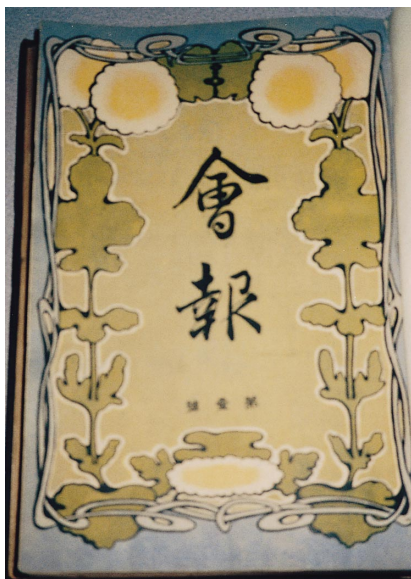 會
報
第壹號